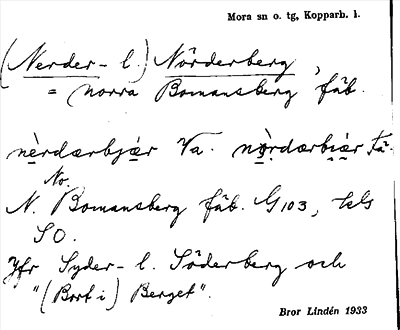 Mora sn o. tg, Kopparb. l.
(Nerder- l.) Nörderberg,
= norra Bomansberg fäb.
nèrdærbjær Va. nò̱rdærbiær Fä.
No.
N. Bomansberg fäb. G 103, tels
SO.
Jfr Syder- l. Söderberg och
"(Bort i) Berget".
Bror Lindén 1933